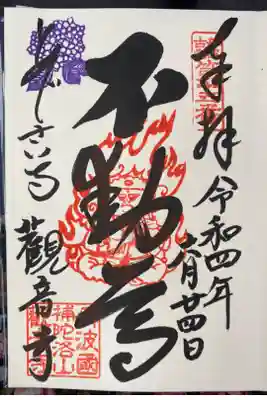 奉拜
令和四年
六月廿四日
不動尊
あじさい寺
觀音寺
丹波國
補陀洛山
觀音寺